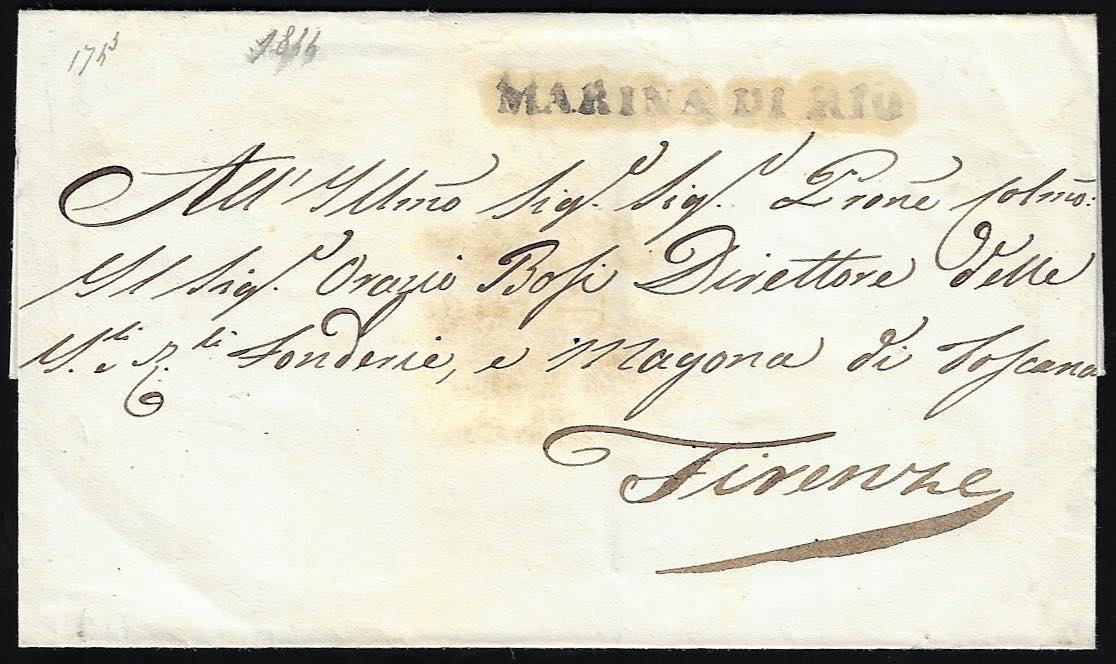 1844
MARINA DI RIO
All' Illmo Sigr. Sigr. Prone Colmo:
Il Sigr. Orazio Bosi Direttore delle
Fonderie, e Magona di Toscana
Firenze